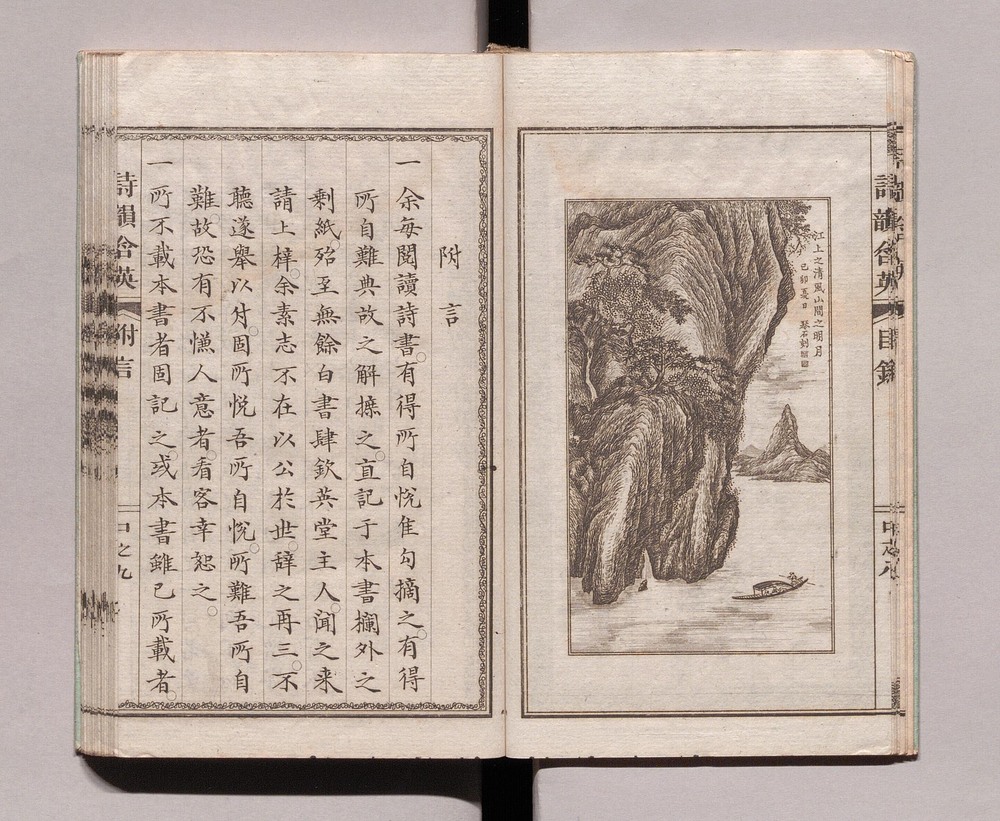 詩韻含英
目錄
口之八
江上之清風山間之明月
己卯夏日
琴石刻
附言
一余每閱讀詩書。有得所自悅隹句摘之。有得
所自難典故之解㨿之。直記于本書欄外之
剩紙。殆至無餘白書肆欽英堂主人。聞之来
請上梓。余素志不在以公於世。辞之再三。不
聽遂舉以付。固所悅吾所自悅。所難吾所自
難。故恐有不慊人意者。看客幸恕之。
一所不載本書者固記之。或本書雖已所載者。
詩韻含英
附言
口之九